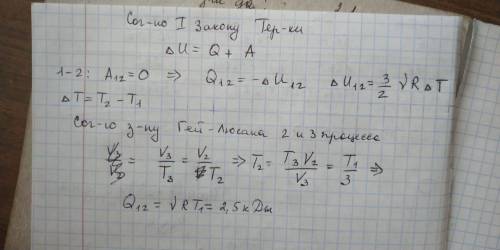 Сог-но I закону Тер-ки
ΔU = Q + A
1-2: A₁₂=0 ⇒ Q₁₂ = -ΔU₁₂ ΔU₁₂ = 3/2 √RΔT
ΔT = T₂ - T₁
Сог-но з-ну Гей-Люсака 2 и 3 процесса
= V₃/T₃ = V₂/T₂ ⇒ T₂ = T₃V₂/V₃ = T₁/3 ⇒
Q₁₂ = √RT₁ = 2,5 кДж